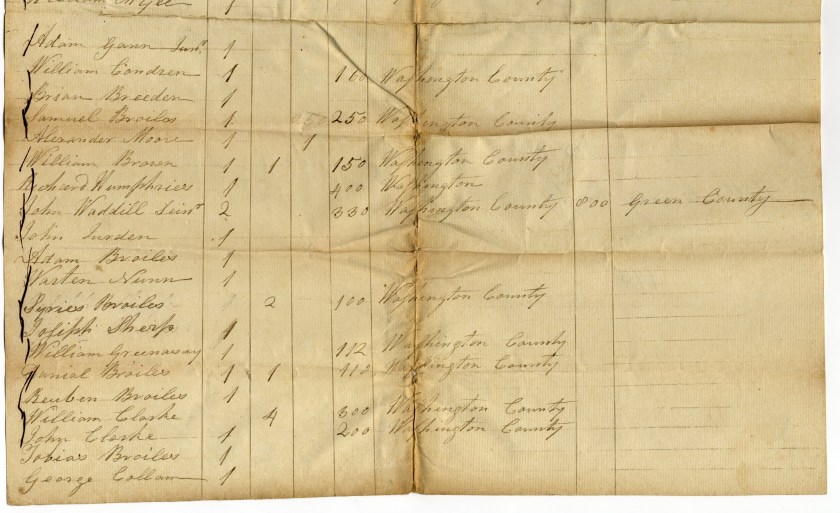 1
Adam Gann Junr. 1
William Condren 1 100 Washington County
Brian Breeden 1
Samuel Broiles 1 250 Washington County
Alexander Moore 1 1
William Brown 1 1 150 Washington County
Richard Humphries 1 400 Washington
John Waddill Seinr 2 330 Washington County 800 Green County
John Jurden 1
Adam Broiles 1
Nunn 1
Broiles 2 100 Washington County
Joseph Sherp 1
William Greenaway 1 112 Washington County
Danial Broiles 1 1 112 Washington County
Reuben Broiles 1
William Clarke 4 300 Washington County
John Clarke 1 200 Washington County
Tobias Broiles 1
George Collam 1